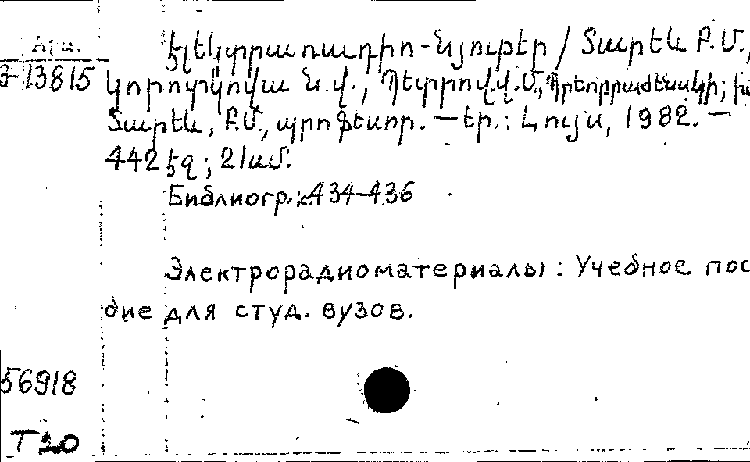 Հրա.
Էլեկտրառադիո-նյութեր / Տարեև Բ.Մ.,
3-13815
Կորոտկովա Ն.Վ., Պետրով Վ.Մ., Պրեոբրաժենսկի;
Տարեև, Բ.Մ, պրոֆեսոր. — Եր.: Լույս, 1982. —
442 էջ; 21սմ.
Библиогр.: 434-436
Электрорадиоматериалы : Учебное пос
бие для студ. вузов.
56918
Т 20